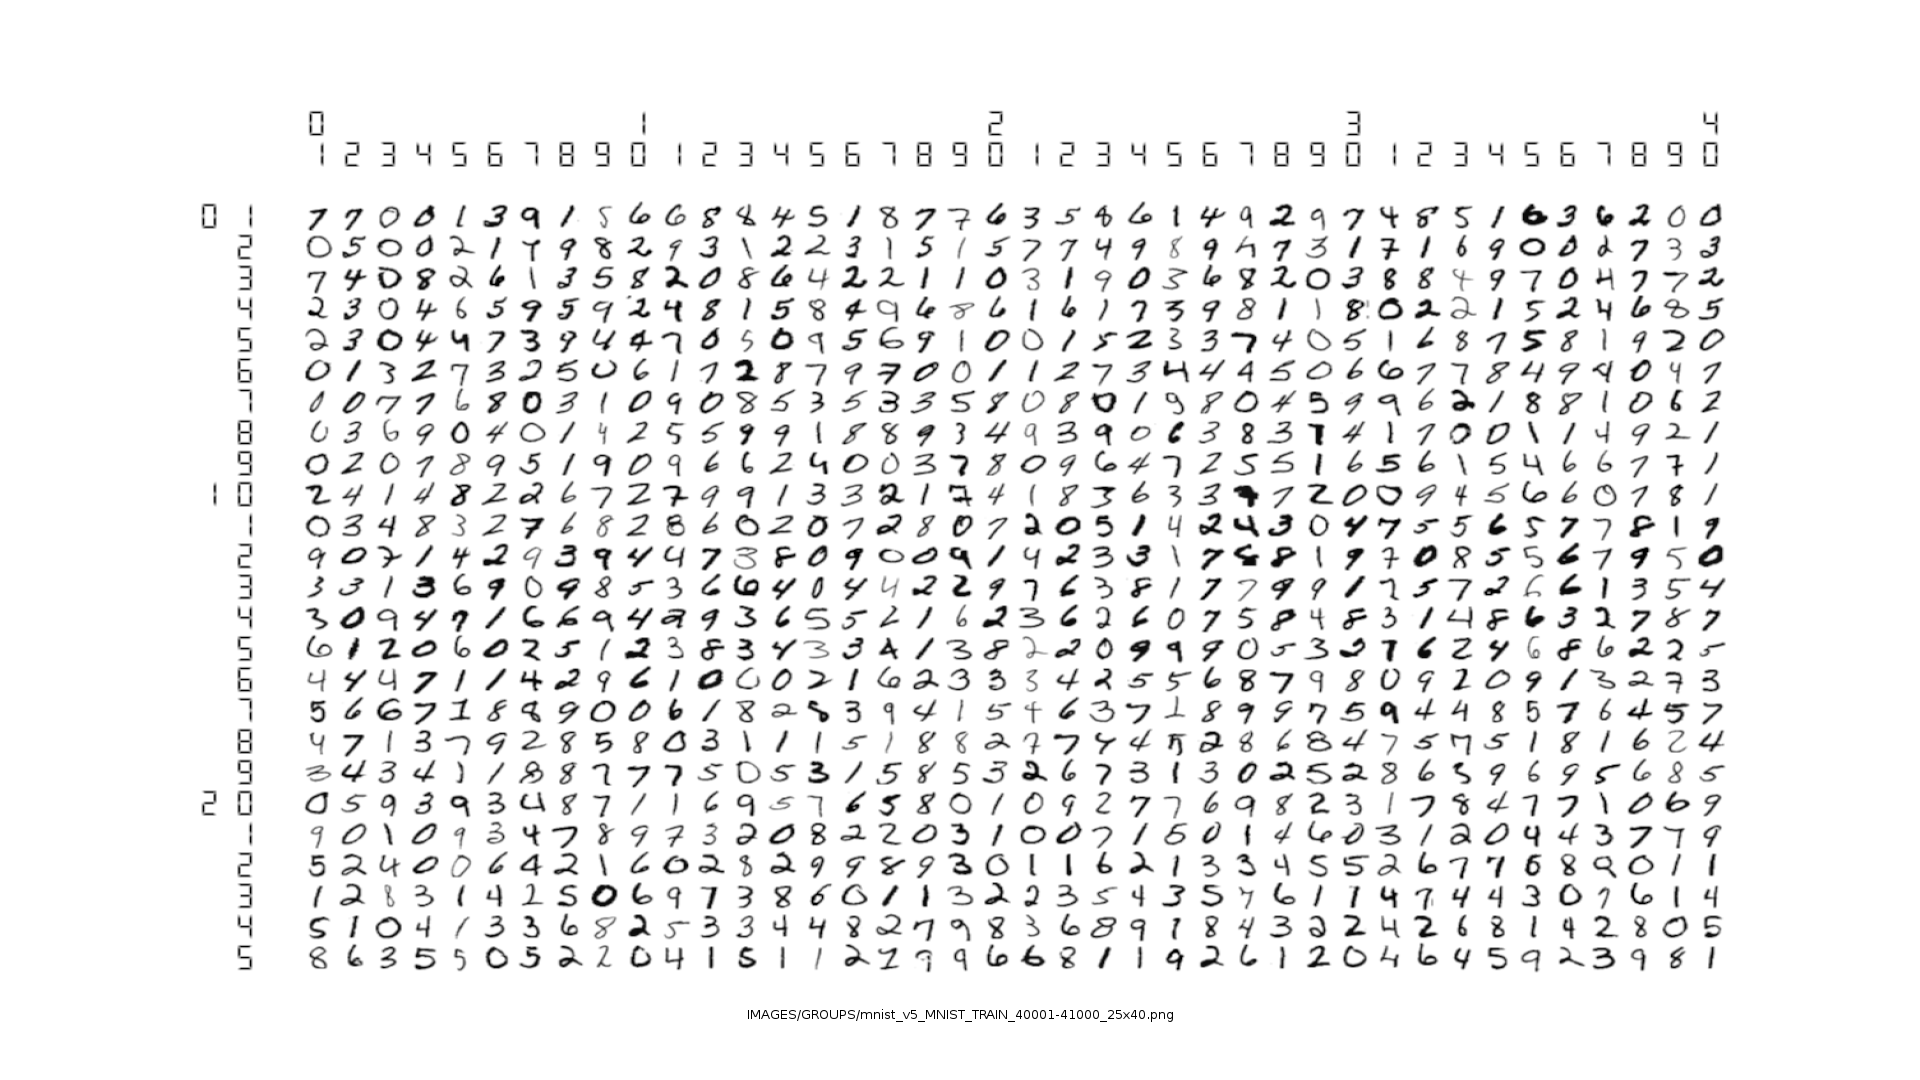 0 1 2 3 4
1 2 3 4 5 6 7 8 9 0 1 2 3 4 5 6 7 8 9 0 1 2 3 4 5 6 7 8 9 0 1 2 3 4 5 6 7 8 9 0
0 1 7 7 0 0 1 3 9 1 5 6 6 8 8 4 5 1 8 7 7 6 3 5 8 6 1 4 9 2 9 7 4 8 5 1 6 3 6 2 0 0
2 0 5 0 0 2 1 7 9 8 2 9 3 1 2 2 3 1 5 1 5 7 7 4 9 8 9 4 7 3 1 7 1 6 9 0 0 2 7 3 3
3 7 4 0 8 2 6 1 3 5 8 2 0 8 6 4 2 2 1 1 0 3 1 9 0 3 6 8 2 0 3 8 8 4 9 7 0 4 7 7 2
4 2 3 0 4 6 5 9 5 9 2 4 8 1 5 8 4 9 6 8 6 1 6 1 7 3 9 8 1 1 8 0 2 2 1 5 2 4 6 8 5
5 2 3 0 4 4 7 3 9 4 4 7 0 5 0 9 5 6 9 1 0 0 1 5 2 3 3 7 4 0 5 1 6 8 7 5 8 1 9 2 0
6 0 1 3 2 7 3 2 5 0 6 1 7 2 8 7 9 7 0 0 1 1 2 7 3 4 4 4 5 0 6 6 7 7 8 4 9 4 0 4 7
7 0 0 7 7 6 8 0 3 1 0 9 0 8 5 3 5 3 3 5 8 0 8 0 1 9 8 0 4 5 9 9 6 2 1 8 8 1 0 6 2
8 0 3 6 9 0 4 0 1 4 2 5 5 9 9 1 8 8 9 3 4 9 3 9 0 6 3 8 3 7 4 1 7 0 0 1 1 4 9 2 1
9 0 2 0 7 8 9 5 1 9 0 9 6 6 2 4 0 0 3 7 8 0 9 6 4 7 2 5 5 1 6 5 6 1 5 4 6 6 7 7 1
1 0 2 4 1 4 8 2 2 6 7 2 7 9 9 1 3 3 2 1 7 4 1 8 3 6 3 3 7 7 2 0 0 9 4 5 6 6 0 7 8 1
1 0 3 4 8 3 2 7 6 8 2 8 6 0 2 0 7 2 8 0 7 2 0 5 1 4 2 4 3 0 4 7 5 5 6 5 7 7 8 1 9
2 9 0 7 1 4 2 9 3 9 4 4 7 3 8 0 9 0 0 9 1 4 2 3 3 1 7 6 8 1 9 7 0 8 5 5 6 7 9 5 0
3 3 3 1 3 6 9 0 9 8 5 3 6 6 4 0 4 4 2 2 9 7 6 3 8 1 7 7 9 9 1 7 5 7 2 6 6 1 3 5 4
4 3 0 9 4 7 1 6 6 9 4 2 9 3 6 5 5 2 1 6 2 3 6 2 6 0 7 5 8 4 8 3 1 4 8 6 3 2 7 8 7
5 6 1 2 0 6 0 2 5 1 2 3 8 3 4 3 3 4 1 3 8 2 2 0 9 9 9 0 5 3 2 7 6 2 4 6 8 6 2 2 5
6 4 4 4 7 1 1 4 2 9 6 1 0 0 0 2 1 6 2 3 3 3 4 2 5 5 6 8 7 9 8 0 9 2 0 9 1 3 2 7 3
7 5 6 6 7 1 8 8 9 0 0 6 1 8 2 8 3 9 4 1 5 4 6 3 7 1 8 9 9 7 5 9 4 4 8 5 7 6 4 5 7
8 4 7 1 3 7 9 2 8 5 8 0 3 1 1 1 5 1 8 8 2 7 7 4 4 5 2 8 6 8 4 7 5 7 5 1 8 1 6 2 4
9 3 4 3 4 1 1 8 8 7 7 7 5 0 5 3 1 5 8 5 3 2 6 7 3 1 3 0 2 5 2 8 6 3 9 6 9 5 6 8 5
2 0 0 5 9 3 9 3 4 8 7 1 1 6 9 5 7 6 5 8 0 1 0 9 2 7 7 6 9 8 2 3 1 7 8 4 7 7 1 0 6 9
1 9 0 1 0 9 3 4 7 8 9 7 3 2 0 8 2 2 0 3 1 0 0 7 1 5 0 1 4 6 0 3 1 2 0 4 4 3 7 7 9
2 5 2 4 0 0 6 4 2 1 6 0 2 8 2 9 9 8 9 3 0 1 1 6 2 1 3 3 4 5 5 2 6 7 7 6 8 9 0 1 1
3 1 2 8 3 1 4 2 5 0 6 9 7 3 8 6 0 1 1 3 2 2 3 5 4 3 5 7 6 1 7 4 7 4 4 3 0 7 6 1 4
4 5 1 0 4 1 3 3 6 8 2 5 3 3 4 4 8 2 7 9 8 3 6 8 9 1 8 4 3 2 2 4 2 6 8 1 4 2 8 0 5
5 8 6 3 5 5 0 5 2 2 0 4 1 5 1 1 2 7 9 9 6 6 8 1 1 9 2 6 1 2 0 4 6 4 5 9 2 3 9 8 1
IMAGES/GROUPS/mnist_v5_MNIST_TRAIN_40001-41000_25x40.png